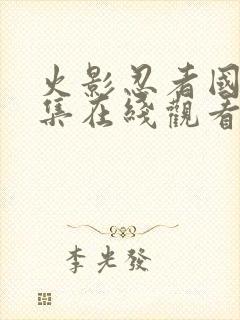 火影忍者國
集在綫觀看
李光發